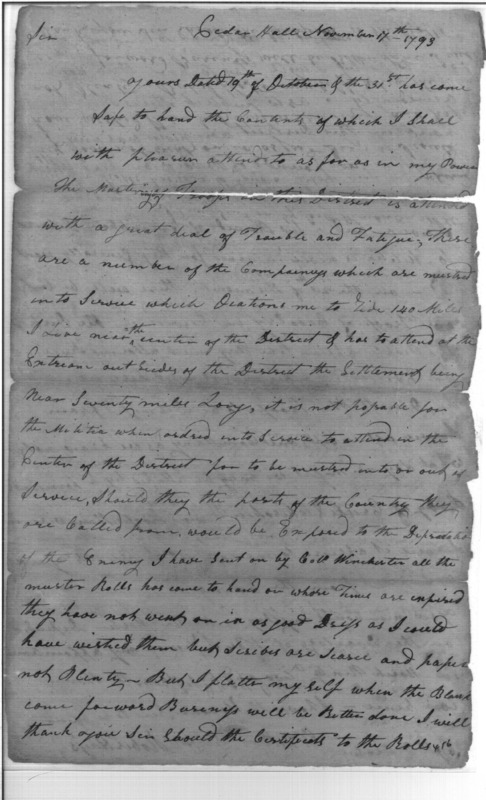 Cedar Hall November 17th 1793
Sir
yours Dated 19th of October & the 31st has come
Safe to hand the Contents of which I Shall
with pleasure attend to as far as in my Power
The Mustring of Troops in this District is attend
with a great deal of Trouble and Fatigue, There
are a number of the Companys which are mustred
into Service which Ocations me to Ride 140 Miles
I Live near the center of the District & has to attend at the
Extreame out Sides of the District the Settlement being
Near Seventy miles Long, it is not posable for
the Militia when ordred into Service to attend in the
Center of the District for to be mustred into or out of
Service, Should they the parts of the Country they
are Called from would be Exposed to the
of the Enemy I have Sent on by Coll Winchester all the
muster Rolls has come to hand or whose Times are expired
they have not went on in as good Dress as I could
have wished them but Scribes are Scarce and paper
not Plenty - But I flatter my self when the Blank
come forward will be Better done I will
thank you Sir Should the Certificats to the Rolls